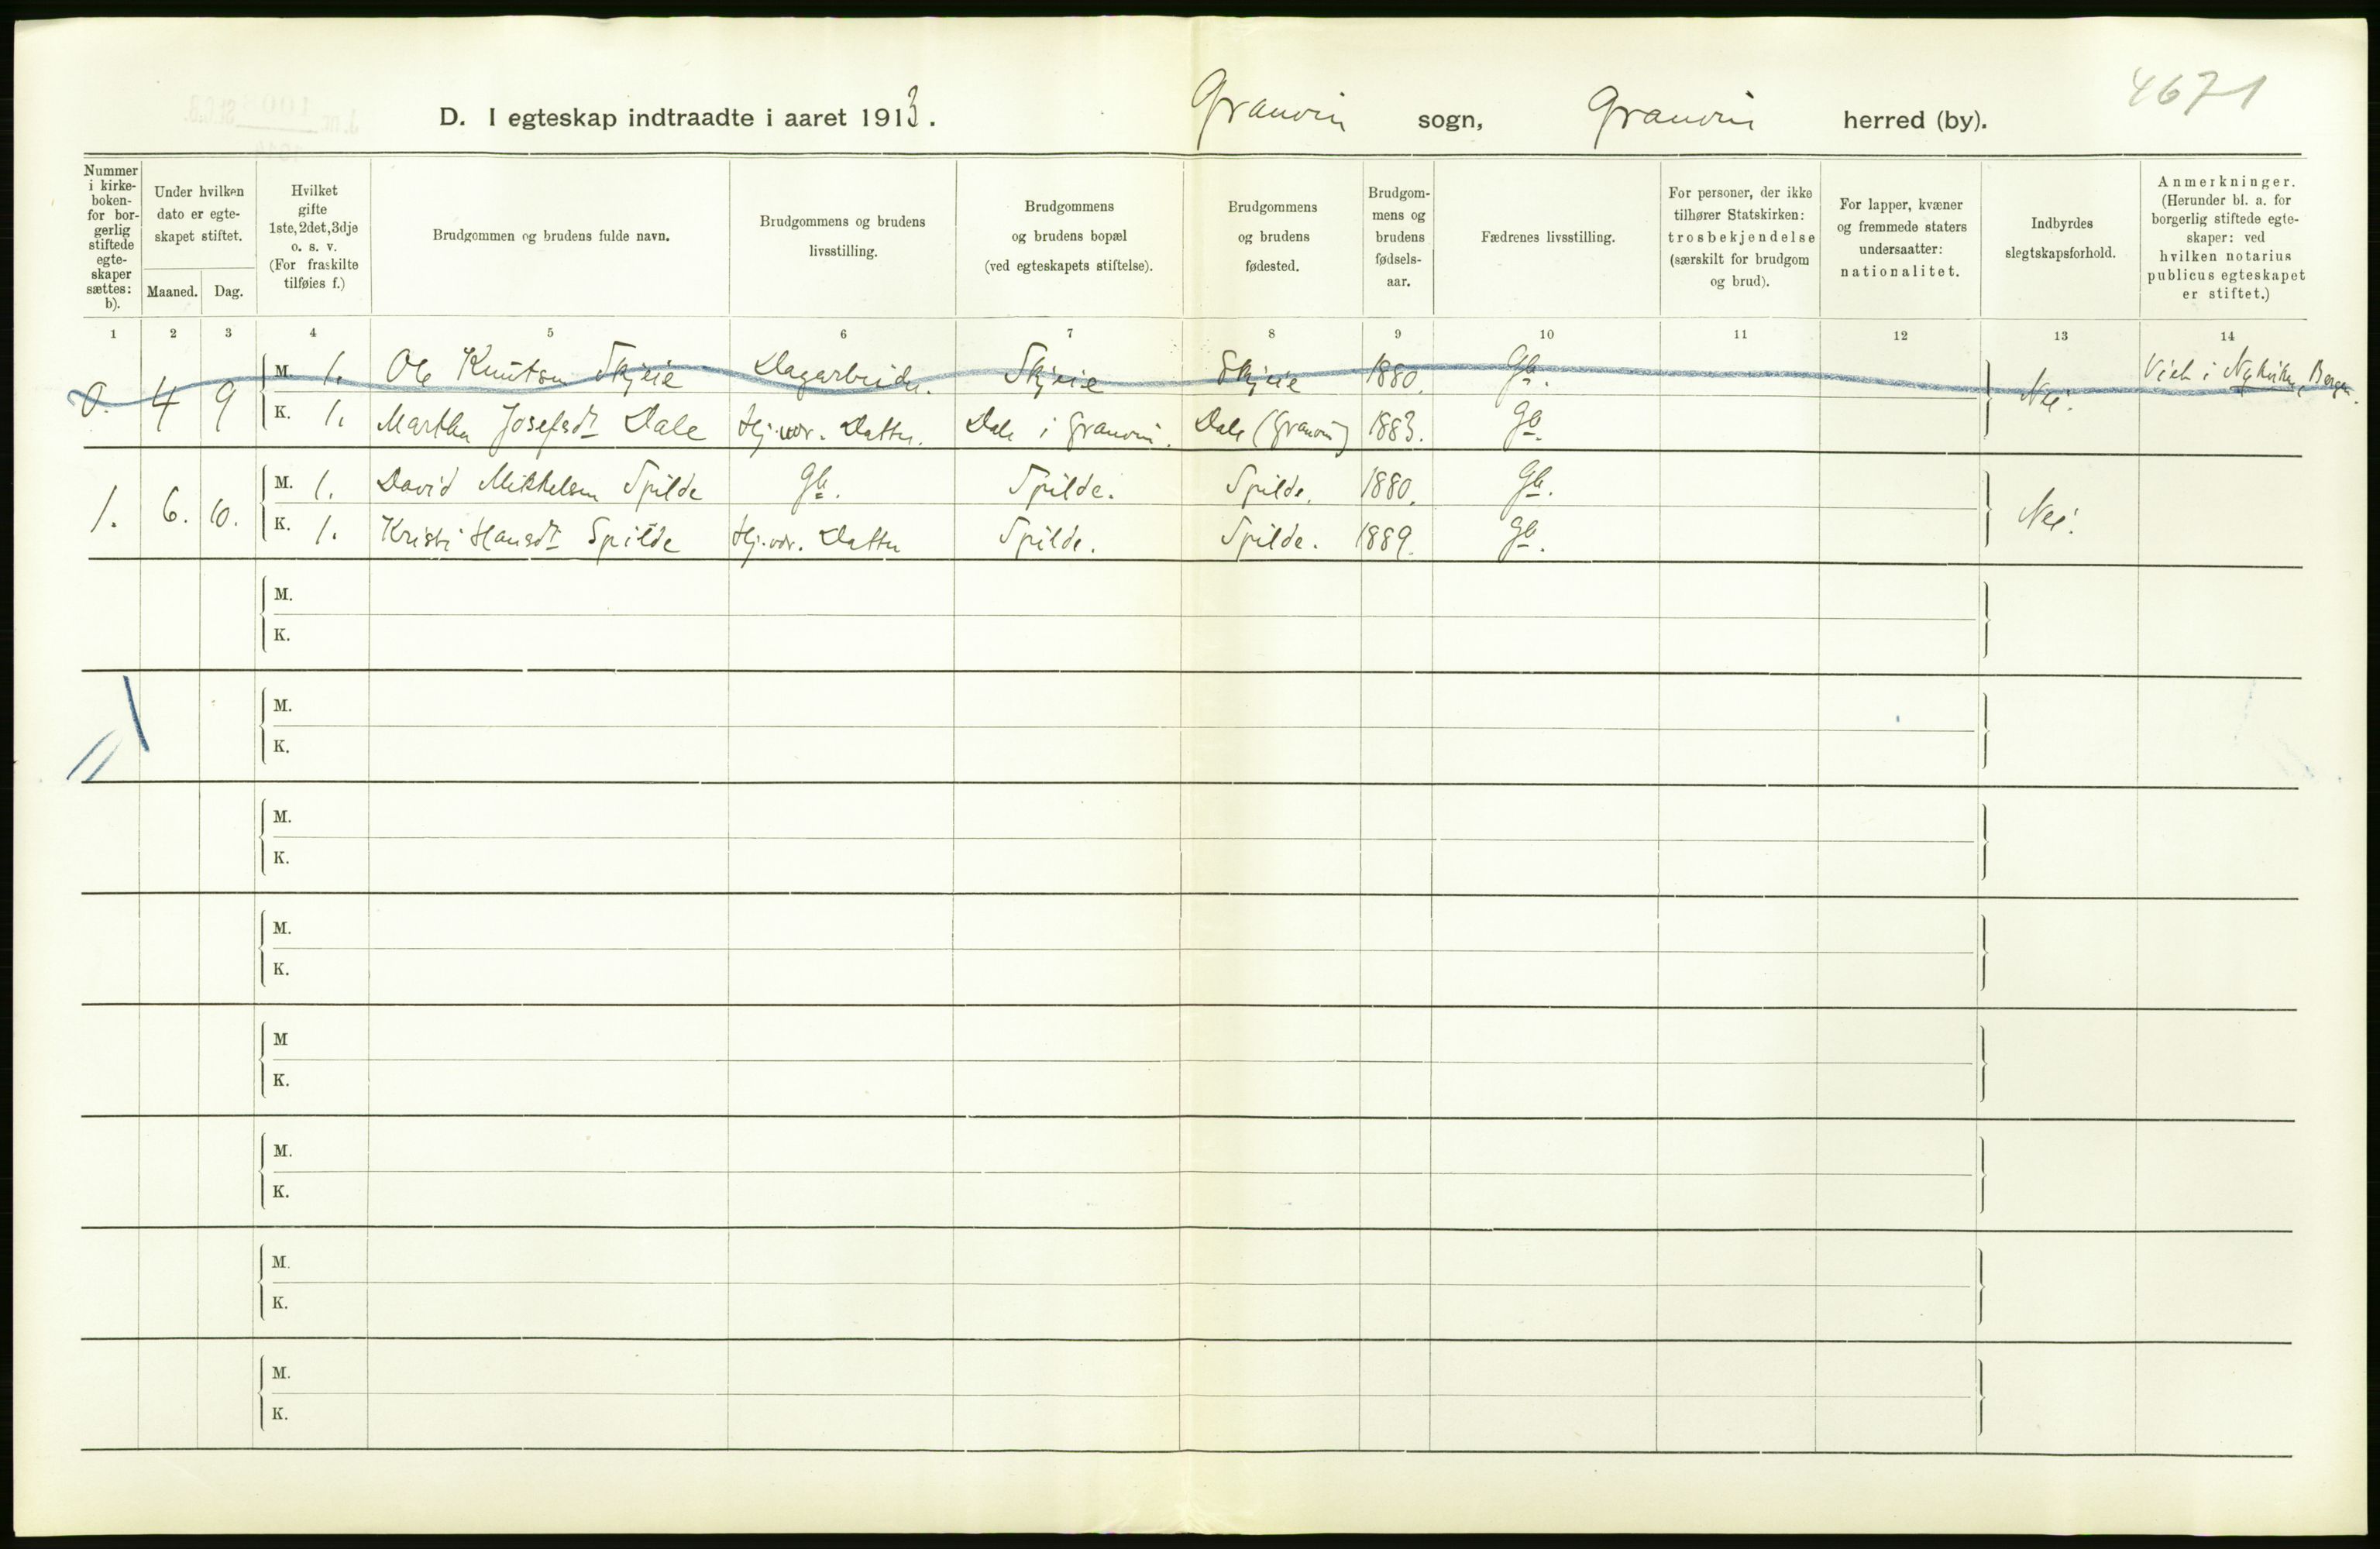 D. I egteskap indtraadte i aaret 1913. Granvin sogn, Granvin herred (by). 4671
Nummer i kirke-boken- for bor-gerlig stiftede egte-skaper sættes: b).
Under hvilken dato er egte-skapet stiftet.
Maaned. Dag.
Hvilket gifte 1ste, 2det, 3dje o. s. v. (For fraskilte tilføies f.)
Brudgommen og brudens fulde navn.
Brudgommens og brudens livsstilling.
Brudgommens og brudens bopæl (ved egteskapets stiftelse).
Brudgommens og brudens fødested.
Brudgom-mens og brudens fødsels-aar.
Fædrenes livsstilling.
For personer, der ikke tilhører Statskirken: trosbekjendelse (særskilt for brudgom og brud).
For lapper, kvæner og fremmede staters undersaatter: nationalitet.
Indbyrdes slegtskapsforhold.
Anmerkninger. (Herunder bl. a. for borgerlig stiftede egte-skaper: ved hvilken notarius publicus egteskapet er stiftet.)
1 2 3 4 5 6 7 8 9 10 11 12 13 14
0. 4 9 M. 1. Ole Knutsen Skjeie Dagarbeider. Skjeie Skjeie 1880. Gb. Nei. Viet i Nykirken, Bergen.
K. 1. Martha Josefsdt Dale Hj. vær. Datter. Dale i Granvin. Dale (Granvin) 1883. Gb.
1. 6. 10. M. 1. David Mikkelsen Spilde Gb. Spilde. Spilde. 1880. Gb. Nei.
K. 1. Kristi Hansdt Spilde Hj. vær. Datter Spilde. Spilde. 1889. Gb.
M.
K.
M.
K.
M.
K.
M.
K.
M
K.
M.
K.
M.
K.
M.
K.